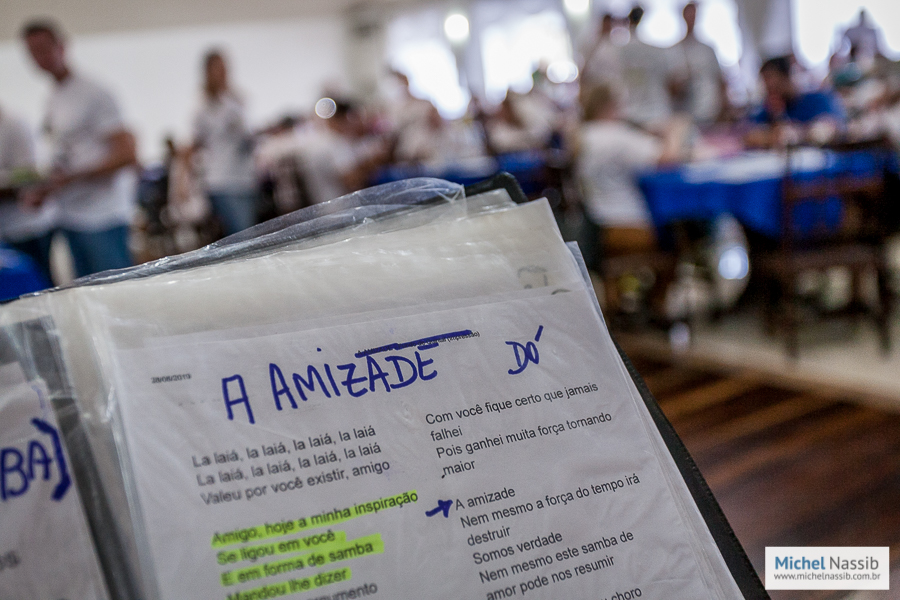 28/08/2019
A AMIZADE
DÓ
La laiá, la laiá, la laiá, la laiá
La laiá, la laiá, la laiá, la laiá
Valeu por você existir, amigo
Amigo, hoje a minha inspiração
Se ligou em você
E em forma de samba
Mandou lhe dizer
Com você fique certo que jamais
falhei
Pois ganhei muita força tornando
maior
A amizade
Nem mesmo a força do tempo irá
destruir
Somos verdade
Nem mesmo este samba de
amor pode nos resumir
choro
BA)
Michel Nassib
www.michelnassib.com.br